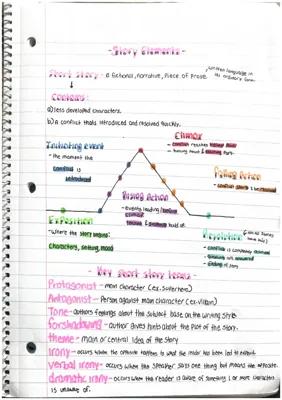 - Story Elements -
Short Story - a fictional, narrative, piece of prose.
written language in its ordinary form.
Contains:
a) less developed characters.
b) a conflict that's introduced and resolved quickly.
Climax
- conflict reaches highest point
- turning point & exciting part.
Initiating event
- the moment the
conflict is
introduced
Falling Action
- conflict starts to be resolved
Rising Action
- events leading
tension & suspense build up.
Exposition
- where the story begins:
characters, setting, mood
Resolution
- conflict is completely resolved
- questions are answered
- ending of story
- Key short story terms -
Protagonist - main character (ex. superhero)
Antagonist - Person against main character (ex. villain)
Tone - authors feelings about the subject base on the writing style.
forshadowing - author gives hints about the plot of the story.
theme - main or central idea of the story
irony - occurs when the opposite happens to what the reader has been led to expect.
verbal irony - occurs when the speaker says one thing but means the opposite.
dramatic irony - occurs when the reader is aware of something 1 or more characters
is unaware of.